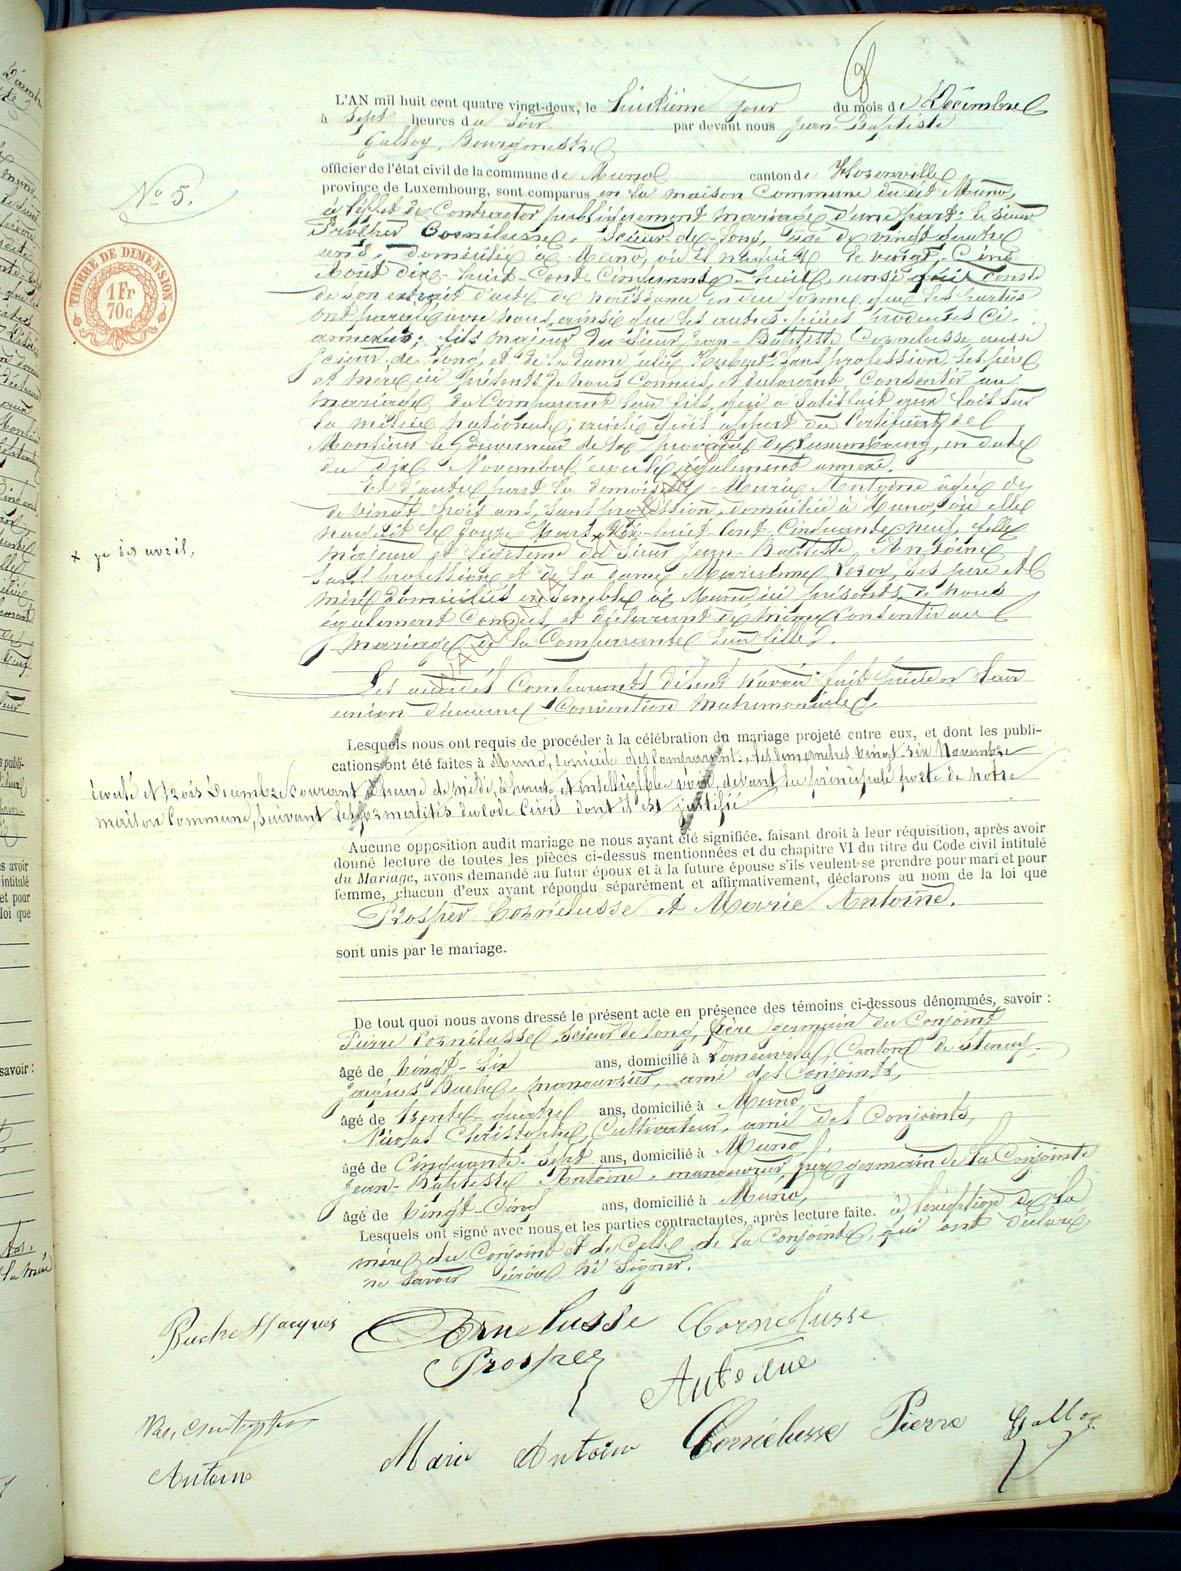 L'AN mil huit cent quatre vingt-deux, le huitième jour du mois de Décembre
à Sept heures du Soir par devant nous Jean-Baptiste
Galloy, Bourgmestre
officier de l'état civil de la commune de Muno canton de Florenville
province de Luxembourg, sont comparus en la maison Commune du dit Muno,
N° 5.
à l'effet de Contracter publiquement mariage d'une part: le sieur
Prosper Cornélusse, Scieur-de-long, âgé de vingt quatre
ans, domicilié à Muno, où il naquit le vingt-Cinq
Août dix-huit-Cent-Cinquante-huit, ainsi que conste
TIMBRE DE DIMENSION
1 Fr
70c
de son extrait d'acte de naissance en due forme, que les parties
ont par devant nous, ainsi que les autres pièces produites ci-
annexées; fils majeur du sieur Jean-Baptiste Cornélusse aussi
Scieur de long, et de la dame Julie Hubert sans profession, ses père
et mère ici présents de nous Connus, et déclarant Consentir au
mariage du Comparant leur fils, qui a satisfait aux lois sur
la milice nationale, ainsi qu'il appert du Certificat de
Monsieur le Gouverneur de la province de Luxembourg, en date
du dix Novembre écoulé, également annexé.
Et d'autre part la demoiselle Marie Antoine âgée de
de vingt trois ans, sans profession, domiciliée à Muno, où elle
naquit le Mars dix-huit Cent-Cinquante neuf, fille
majeure et légitime du Sieur Jean-Baptiste Antoine
x avril,
sans profession et de la dame Marienne, ses père et
mère domiciliés ensemble à Muno, ici présents, de nous
également Connus, et déclarant de même Consentir au
mariage de la Comparante leur fille.
Les Comparants disent n'avoir fait leur
union d'aucune Convention Matrimoniale.
Lesquels nous ont requis de procéder à la célébration du mariage projeté entre eux, et dont les publi-
cations ont été faites à Muno, domicile des Comparants, les dimanches vingt-six Novembre
écoulé et trois Décembre courant à heure de midi, à haute et intelligible voix, devant la principale porte de notre
maison Commune, suivant les formalités du Code Civil dont il est justifié
Aucune opposition audit mariage ne nous ayant été signifiée, faisant droit à leur réquisition, après avoir
donné lecture de toutes les pièces ci-dessus mentionnées et du chapitre VI du titre du Code civil intitulé
du Mariage, avons demandé au futur époux et à la future épouse s'ils veulent se prendre pour mari et pour
femme, chacun d'eux ayant répondu séparément et affirmativement, déclarons au nom de la loi que
Prosper Cornélusse et Marie Antoine.
sont unis par le mariage.
De tout quoi nous avons dressé le présent acte en présence des témoins ci-dessous dénommés, savoir :
Pierre Cornélusse, scieur de long, frère germain du Conjoint
âgé de vingt-six ans, domicilié à Laneuville, Canton de Stenay
Jacques Buche, manouvrier, ami des Conjoints,
âgé de trente-quatre ans, domicilié à Muno
Nicolas Christophe, Cultivateur, ami des Conjoints,
âgé de Cinquante-sept ans, domicilié à Muno
Jean-Baptiste Antoine, manouvrier, frère germain de la Conjointe
âgé de Vingt-Cinq ans, domicilié à Muno,
Lesquels ont signé avec nous et les parties contractantes, après lecture faite. à l'exception de la
mère du Conjoint et de Celle de la Conjointe, qui ont déclaré
ne Savoir écrire ni Signer.
Buche Jacques Cornelusse Cornelusse
Prosper Antoine
Nas, Christophe
Marie Antoine Cornélusse Pierre Galloy
Antoine